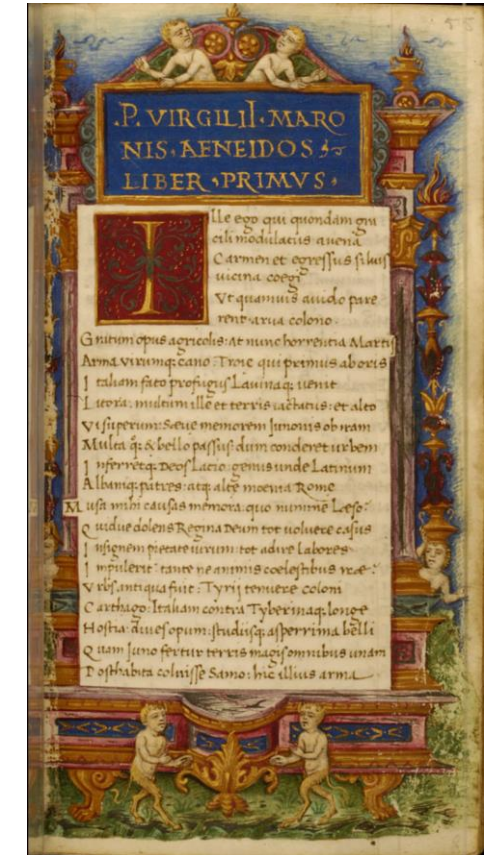 .P. VIRGILII. MARO
NIS. AENEIDOS
LIBER. PRIMVS.
Ille ego qui quondam gra
cili modulatus auena
Carmen et egressus siluis
uicina coegi
Vt quamuis auido pare
rent arua colono.
Gratum opus agricolis: At nunc horrentia Martis
Arma virumq; cano: Troie qui primus ab oris
Italiam fato profugus Lauinaq; uenit
Litora: multum ille et terris iactatus: et alto
Vi superum: Saeue memorem Junonis ob iram
Multa q; & bello passus: dum conderet urbem
Inferretq; Deos Lacio: genus unde Latinum
Albaniq; patres: atq; alte moenia Rome
Musa mihi causas memora: quo numine Læso:
Quidue dolens Regina Deum tot uoluere casus
Insignem pietate uirum: tot adire Labores
Impulerit: tante ne animis coelestibus iræ:
Vrbs antiqua fuit: Tyrij tenuere coloni
Carthago: Italiam contra Tyberinaq; longe
Hostia: diues opum: studiisq; asperrima belli
Quam Juno fertur terris magis omnibus unam
Posthabita coluisse Samo: hic illius arma